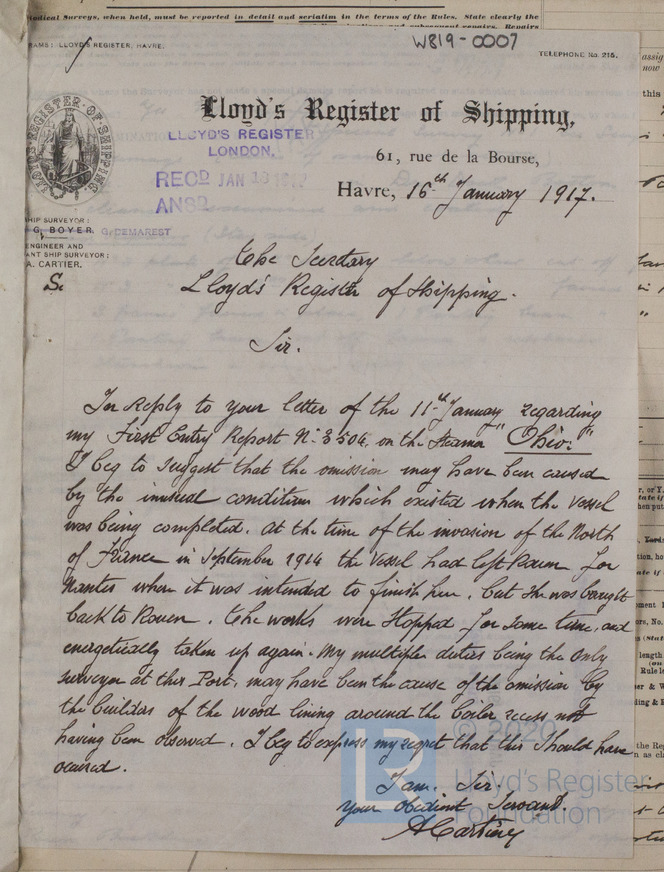 W819-0007
Medical Surveys, when held, must be reported in detail and seriatim in the terms of the Rules. State clearly the
RAMS: LLOYD'S REGISTER, HAVRE.
TELEPHONE No. 215.
Lloyd's Register of Shipping,
LLOYD'S REGISTER
LONDON.
61, rue de la Bourse,
RECD JAN 18 1917
ANSD
Havre, 16th January 1917.
LLOYD'S REGISTER OF SHIPPING
SHIP SURVEYOR:
G. BOYER. G. DEMAREST
ENGINEER AND
ANT SHIP SURVEYOR:
A. CARTIER.
The Secretary
Lloyd's Register of Shipping.
Sir.
In Reply to your letter of the 11th January regarding
my First Entry Report No. 3504 on the Steamer "Ohio."
I beg to suggest that the omission may have been caused
by the inusual conditions which existed when the vessel
was being completed. At the time of the invasion of the North
of France in September 1914 the vessel had left Rouen for
Nantes where it was intended to finish her, but she was brought
back to Rouen. The works were stopped for some time, and
energetically taken up again. My multiple duties being the only
surveyor at this Port, may have been the cause of the omission by
the builders of the wood lining around the boiler recess not
having been observed. I beg to express my regret that this should have
occured.
I am. Sir.
your obedient Servant.
A Cartier
© 2020
LR
Lloyd's Register
Foundation